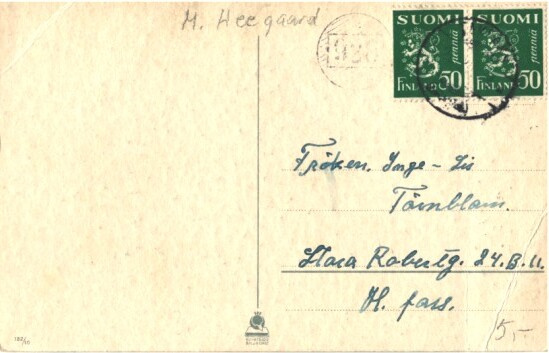 M. Heegaard
SUOMI SUOMI
penniä penniä
FINLAND 50 FINLAND 50
Fröken. Inge-Lis
Törnblom.
Stora Robertg. 24.B.11
H. fors.
5,-